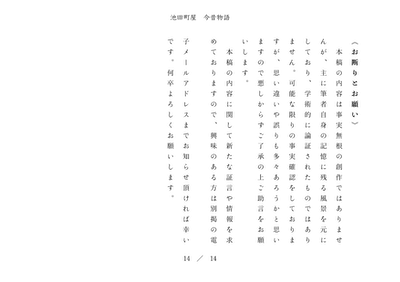 池田町屋　今昔物語
《お断りとお願い》
　本稿の内容は事実無根の創作ではありませ
んが、主に筆者自身の記憶に残る風景を元に
しており、学術的に論証されたものではあり
ません。可能な限りの事実確認をしておりま
すが、思い違いや誤りも多々あろうかと思い
ますので悪しからずご了承の上ご助言をお願
いします。
　本稿の内容に関して新たな証言や情報を求
めておりますので、興味のある方は別掲の電
子メールアドレスまでお知らせ頂ければ幸い
です。何卒よろしくお願いします。
14 / 14